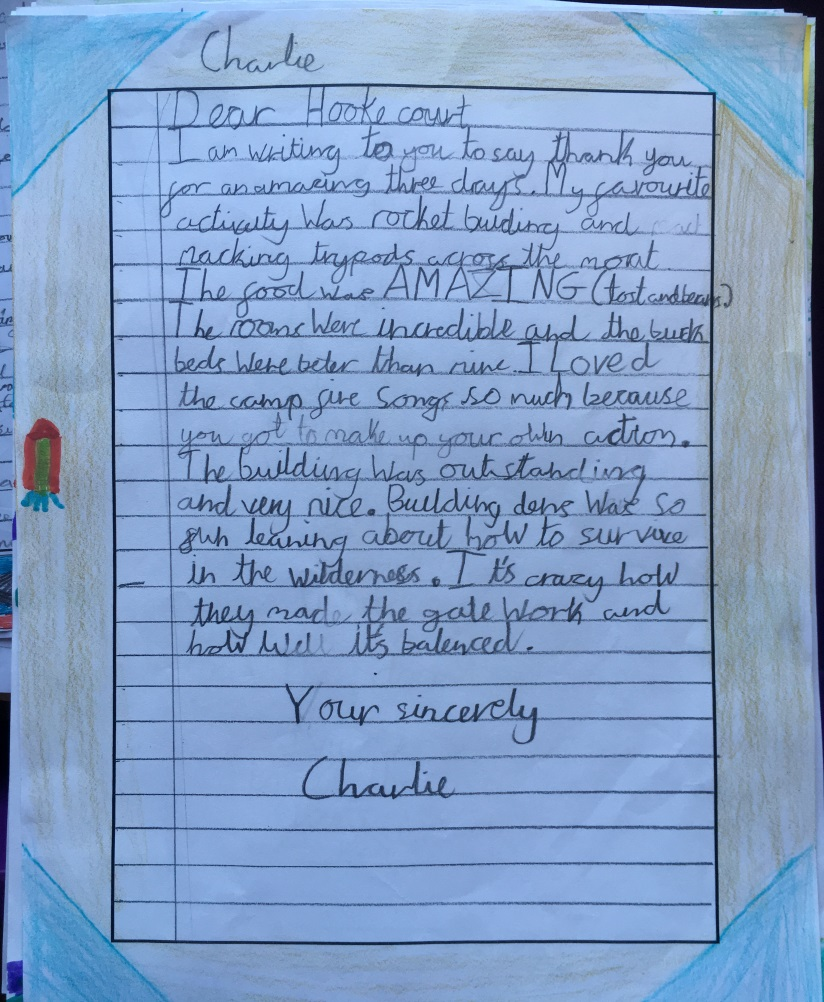 Charlie
Dear Hooke court
I am writing to you to say thank you
for an amazing three days. My favourite
activity Was rocket buiding and
macking trypods across the moat
The food was AMAZING (tost and beans)
The rooms Were incredible and the bunk
beds Were beter than mine. I Loved
the camp fire Songs so much because
you got to make up your own action.
The building Was outstanding
and very nice. Building dens Was So
fun leaning about how to survive
in the wilderness. It's crazy how
they made the gate Work and
how Well it's balenced.
Your sincerely
Charlie